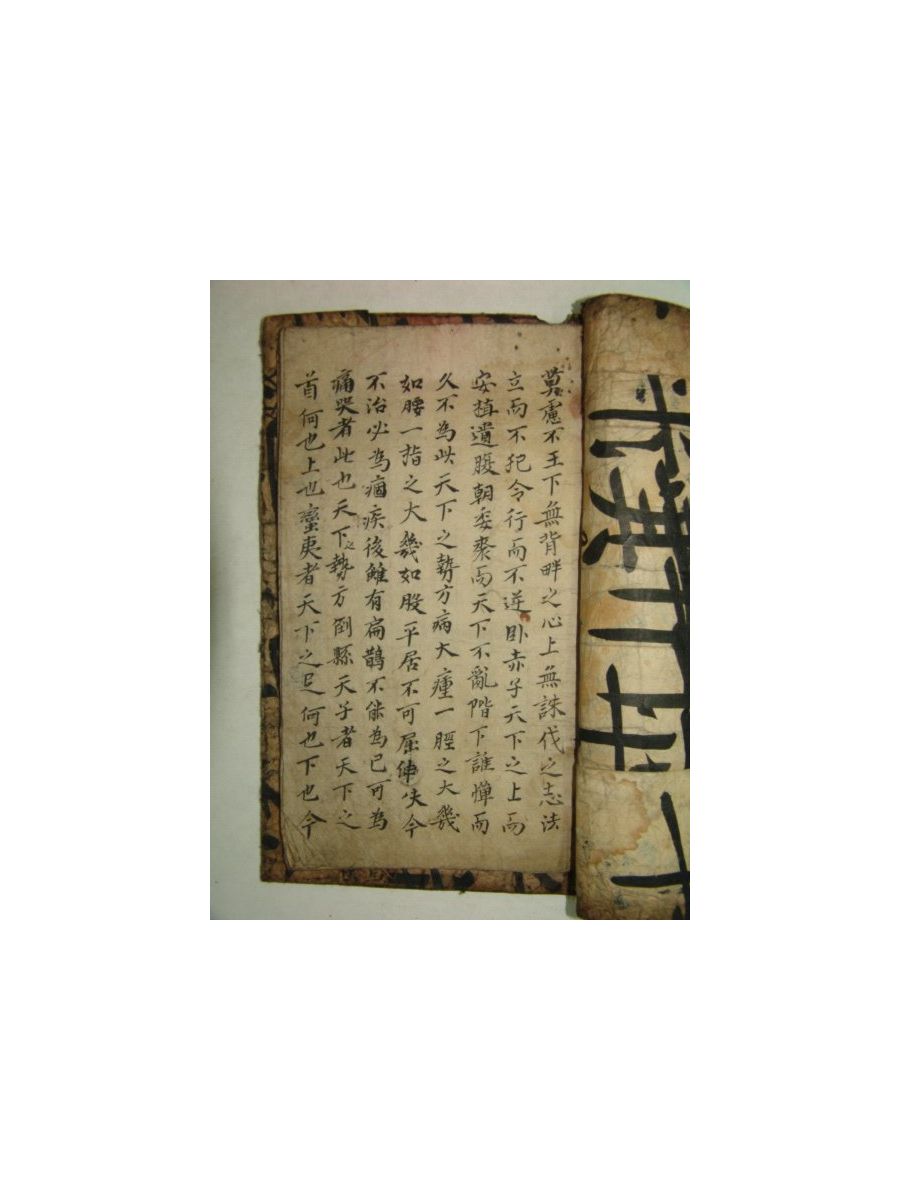 莫慮不王下無背畔之心上無誅伐之志法
立而不犯令行而不逆卧赤子天下之上而
安植遺腹朝委裘而天下不亂階下誰憚而
久不為此天下之勢方病大瘇一脛之大幾
如腰一指之大幾如股平居不可屈伸失今
不治必為痼疾後雖有扁鵲不能為已可為
痛哭者此也天下之勢方倒縣天子者天下之
首何也上也蠻夷者天下之足何也下也今